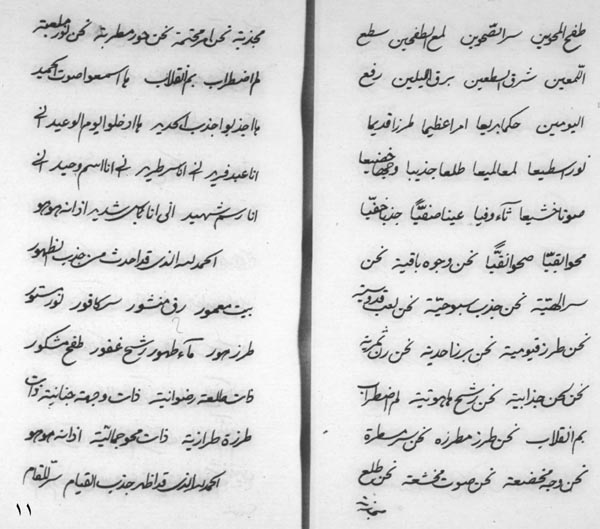 طفح المحوین سر الصحوین لمع الطفحین سطع
اللمعین شرق السطعین برق اللیلین رفع
الیومین حکما بریعا امرا عظیما طرزا قدیما
نور اسطیعا لمعا لمیعا طلعا جذیبا وجها خضیعا
صوتا خشیعا وفیا عینا صفیًّا جذبا خفیّا
محوا بقیّا صحوا نقیًّا نحن وجوه باقیة نحن
سر الهیّة نحن جذب سبوحیّة نحن لعب قدوسیة
نحن طرز قیومیة نحن برز احدیة نحن
نحن جذابیة نحن رشح لاهوتیة لم اضطراب
بم انقلاب نحن طرز مطرزه نحن سر مسطرة
نحن وجه مخضعة نحن صوت مخشعة نحن طلع
مجذبة نحن امر محتمة نحن حور مطربة نحن نور ملعبة
لم اضطراب بم انقلاب ها اسمعوا صوت الحمید
ها اجذبوا جذب الحدید ها ادخلوا یوم الوعید انی
انا عبد فرید انی انا سر طریز انی انا اسم وحید انی
انا رسم شهید انی انا کل شدید اذ انه هو هو
الحمد لله الذی قد احدث من جذب الظهور
بیت معمور رق منشور سر کافور نور مستور
طرز حور مآء طهور رشح غفور طفح مشکور
ذات طلعة رضوانیة ذات وجهة جنانیة ذات
طرزة طرازیة ذات محو جمالیة اذ انه هو هو
الحمد لله الذی قد اظهر جذب القیام سرّ المقام
١١